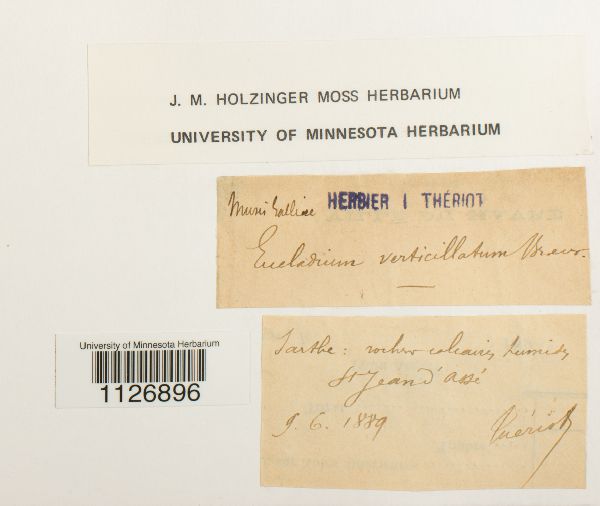 J. M. HOLZINGER MOSS HERBARIUM
UNIVERSITY OF MINNESOTA HERBARIUM
Musci Galliae HERBIER I THÉRIOT
Eucladium verticillatum Brew.
Sarthe: rochers calcaires humides
St Jean d'Assé
9. 6. 1889 Thériot
University of Minnesota Herbarium
1126896